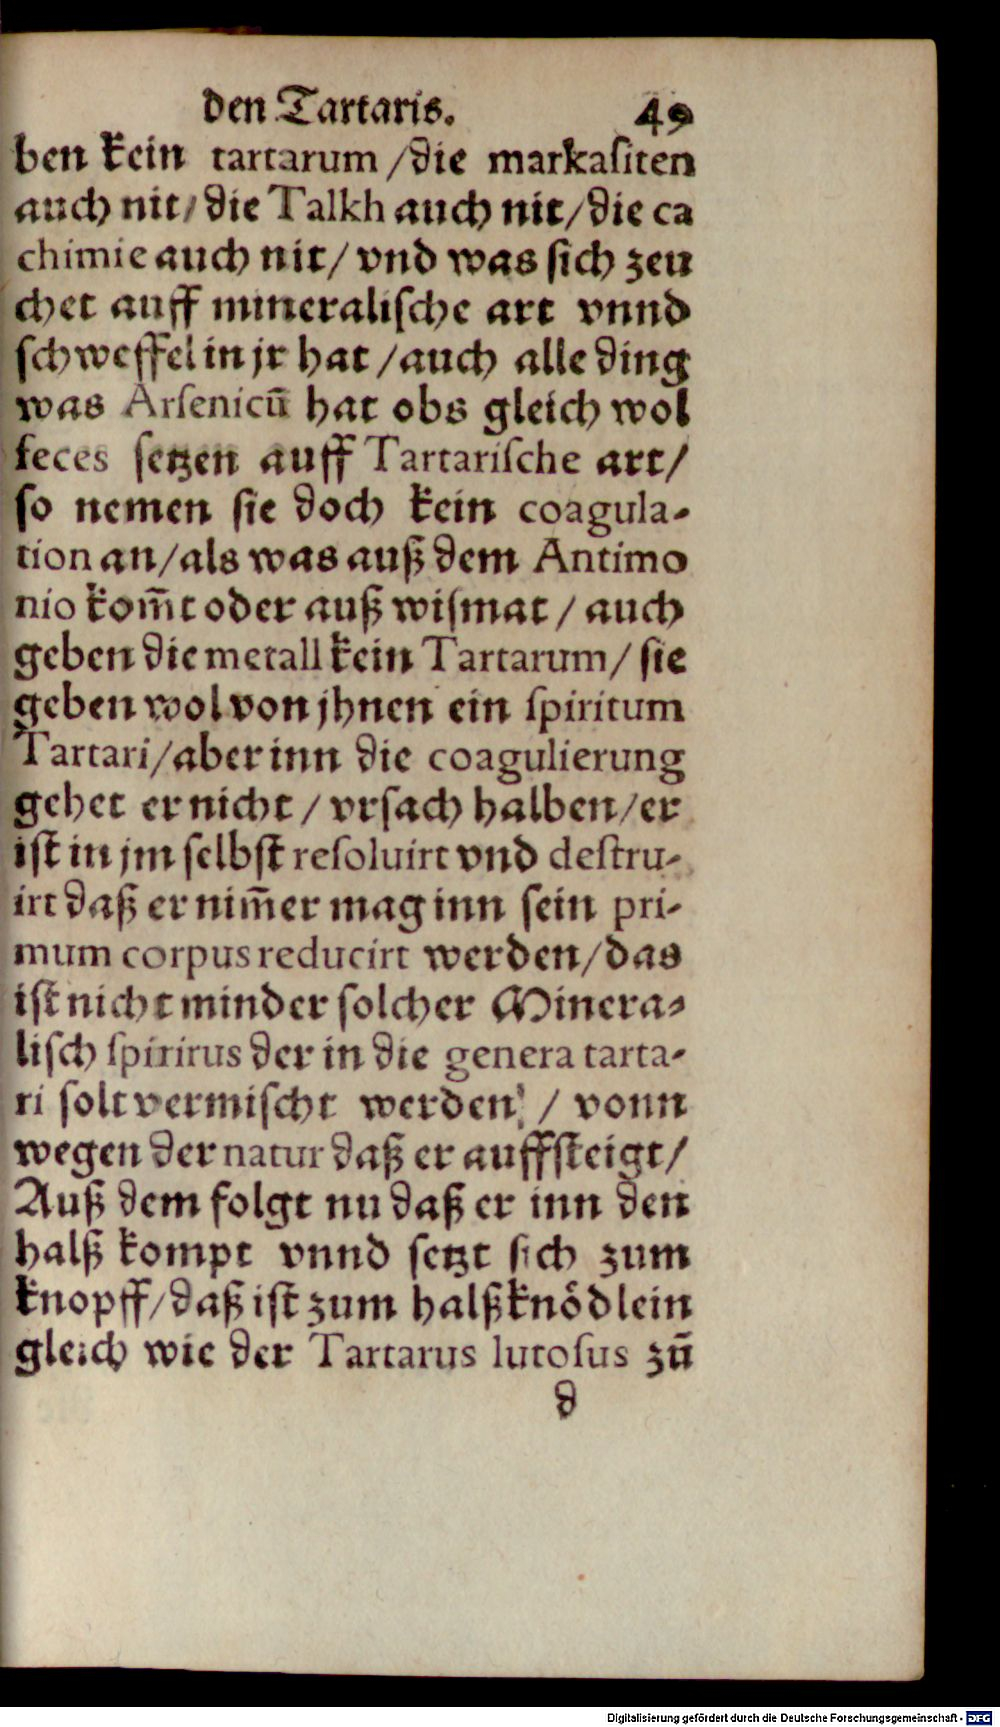 den Tartaris. 49
ben kein tartarum /die markasiten
auch nit/die Talkh auch nit/die ca
chimie auch nit/ vnd was sich zeu
chet auff mineralische art vnnd
schweffel in jr hat /auch alle ding
was Arsenicū hat obs gleich wol
feces setzen auff Tartarische art/
so nemen sie doch kein coagula-
tion an/als was auß dem Antimo
nio kom̄t oder auß wismat / auch
geben die metall kein Tartarum/ sie
geben wol von jhnen ein spiritum
Tartari/aber inn die coagulierung
gehet er nicht / vrsach halben/er
ist in jm selbst resoluirt vnd destru-
irt daß er nim̄er mag inn sein pri-
mum corpus reducirt werden/das
ist nicht minder solcher Minera-
lisch spirirus der in die genera tarta-
ri solt vermischt werden / vonn
wegen der natur daß er auffsteigt/
Auß dem folgt nu daß er inn den
halß kompt vnnd setzt sich zum
knopff/daß ist zum halßknödlein
gleich wie der Tartarus lutosus zū
d
Digitalisierung gefördert durch die Deutsche Forschungsgemeinschaft - DFG